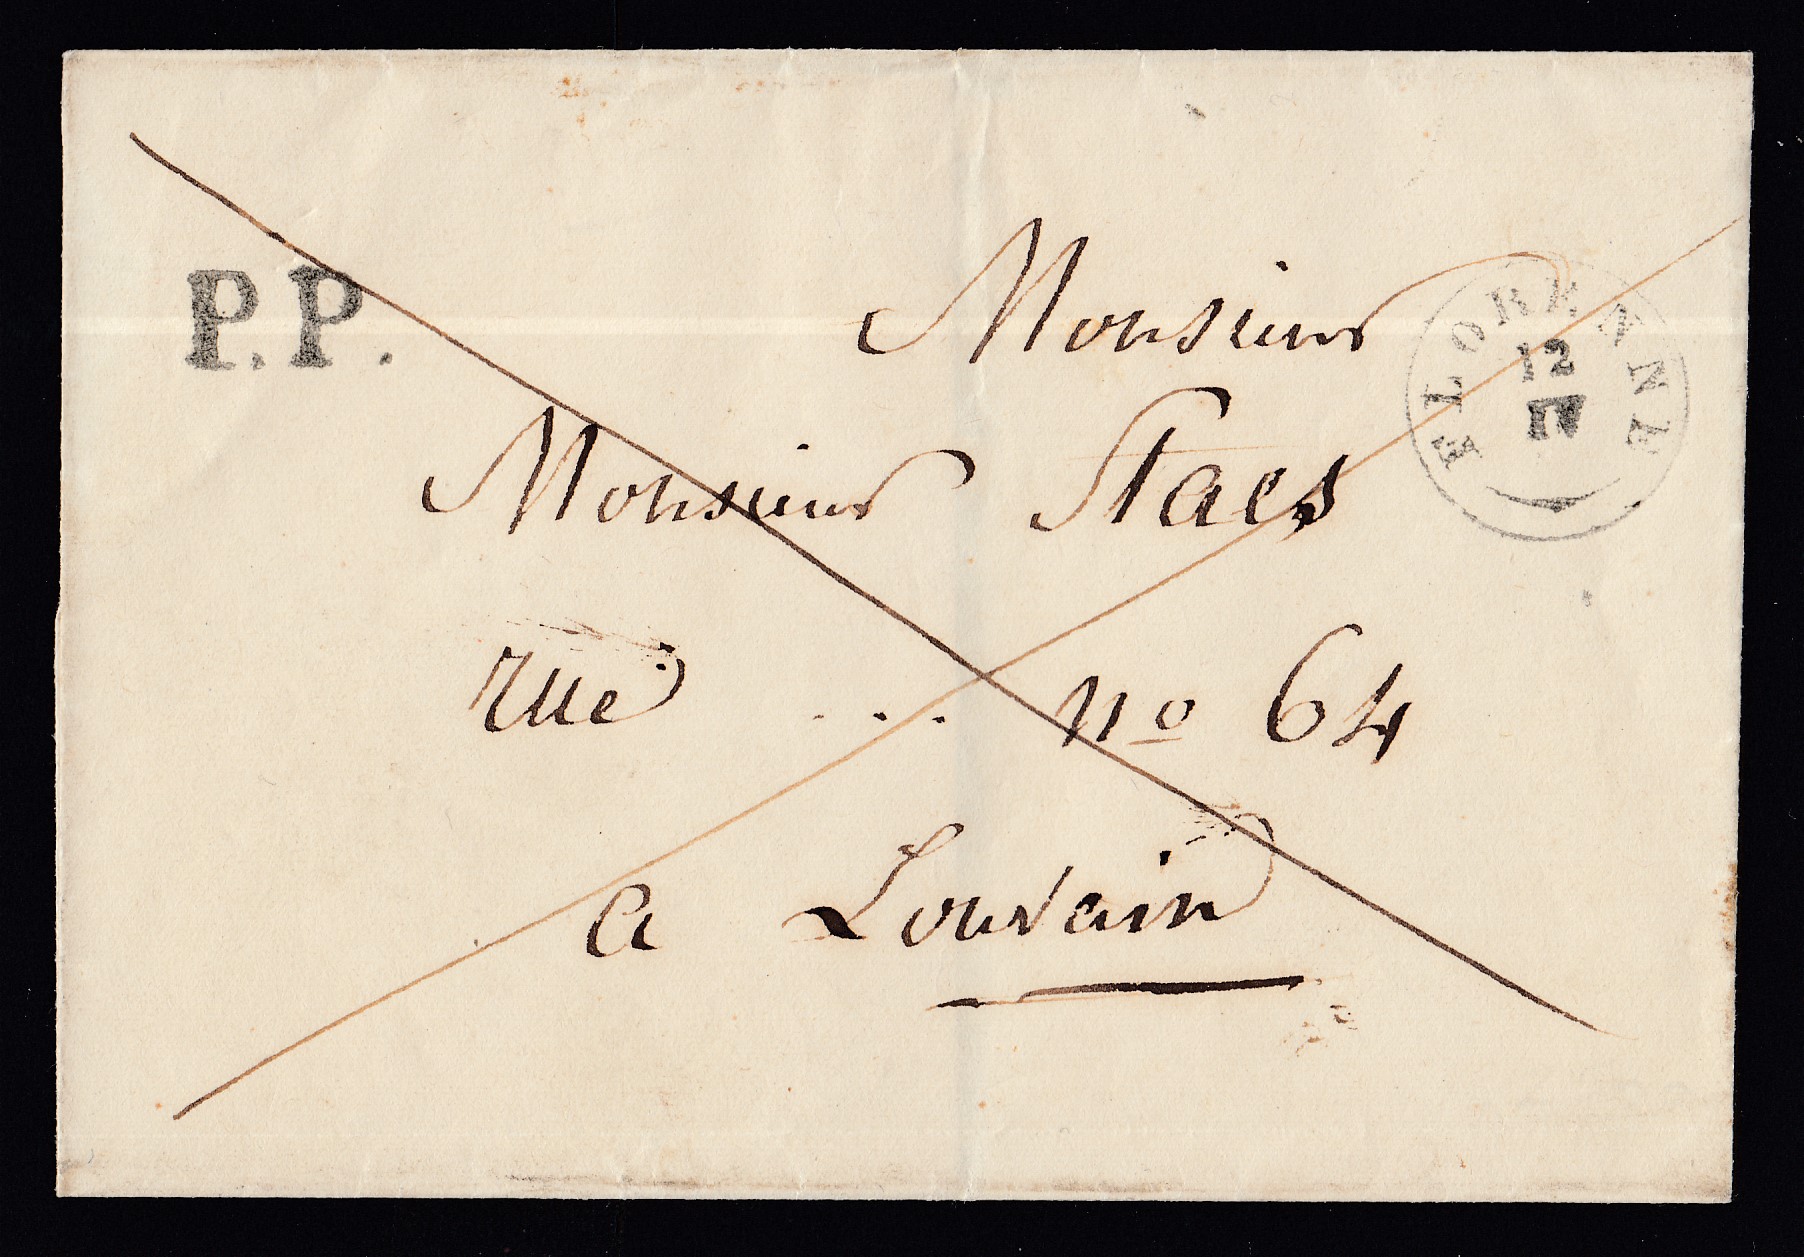 P.P.
Monsieur
FLORENNE
12
IV
Monsieur Staes
rue ... no 64
a Louvain